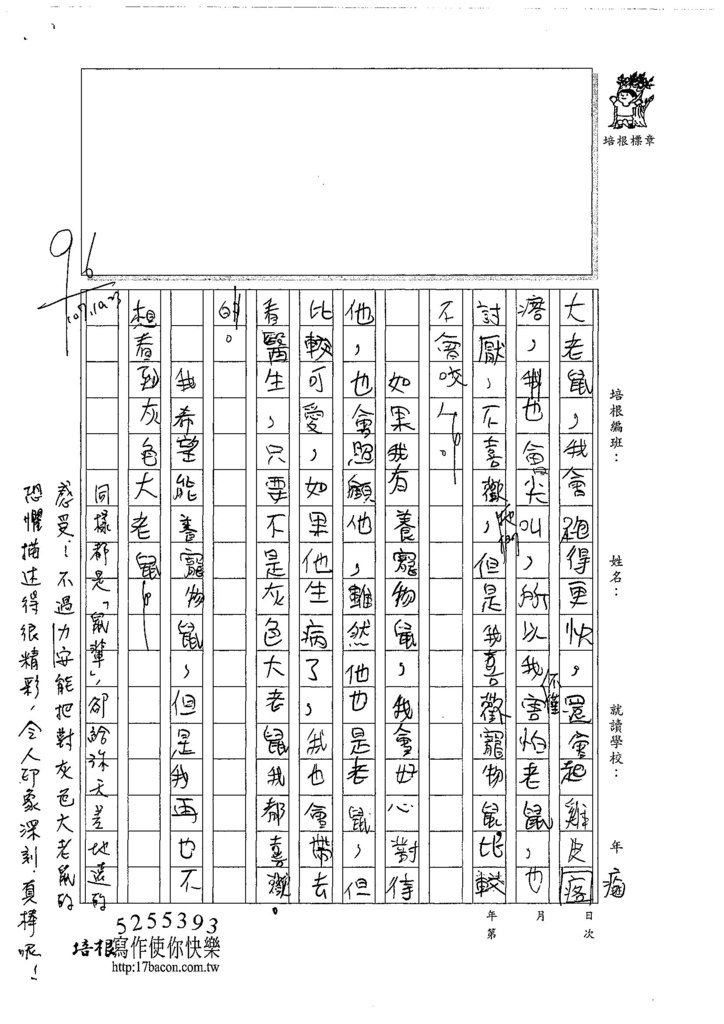 培根標章
培根編班：
姓名：
就讀學校：
年
月
日
年第
次
大老鼠，我會跑得更快，還會起雞皮疙
瘩，我也會尖叫，所以我不僅害怕老鼠，也
討厭，不喜歡牠們，但是我喜歡寵物鼠，比較
不會咬人。
如果我有養寵物鼠，我會好心對待
他，也會照顧他，雖然他也是老鼠，但
比較可愛，如果他生病了，我也會帶去
看醫生，只要不是灰色大老鼠我都喜歡。
的。
我希望能養寵物鼠，但是我再也不
想看到灰色大老鼠。
同樣都是「鼠輩」，卻給你天差地遠的
感受！不過力安能把對灰色大老鼠的
恐懼描述得很精彩，令人印象深刻，真棒呢！
96
107.10.23
5255393
培根寫作使你快樂
http:17bacon.com.tw